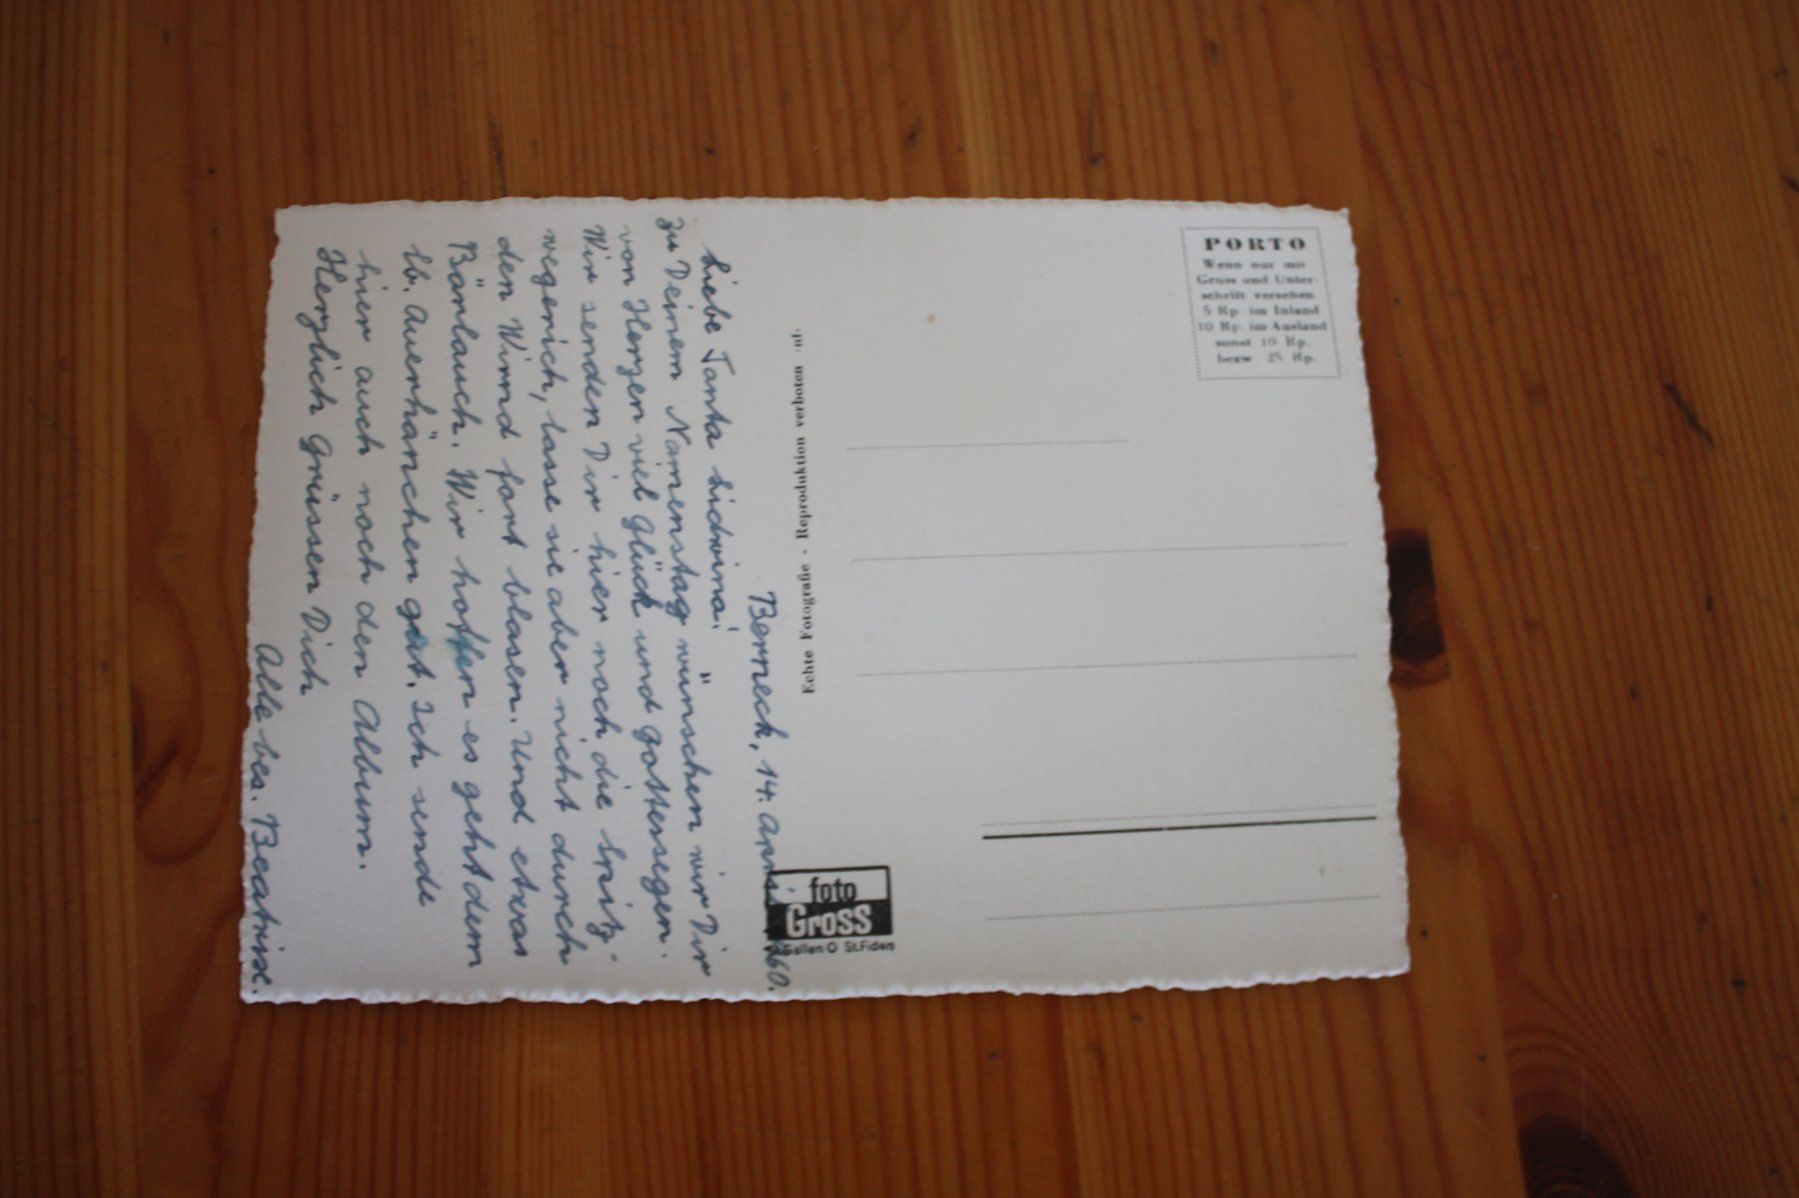 Berneck, 14. April 1960.
Liebe Tanta Lidwina!
Zu Deinem Namenstag wünschen wir Dir
von Herzen viel Glück und Gottessegen.
Wir senden Dir hier noch die Spitz-
wegerich, lasse sie aber nicht durch
den Wirnd fort blasen. Und etwas
Bärlauch. Wir hoffen es geht dem
lb. Auerhänchen gut. Ich sende
hier auch noch den Album.
Herzlich Grüssen Dich
Alle bes. Beatrise.
Echte Fotografie · Reproduktion verboten
PORTO
Wenn nur mit
Gruss und Unter-
schrift versehen
5 Rp. im Inland
10 Rp. im Ausland
sonst 10 Rp.
bezw 25 Rp.
foto
Gross
St.Gallen O St.Fiden